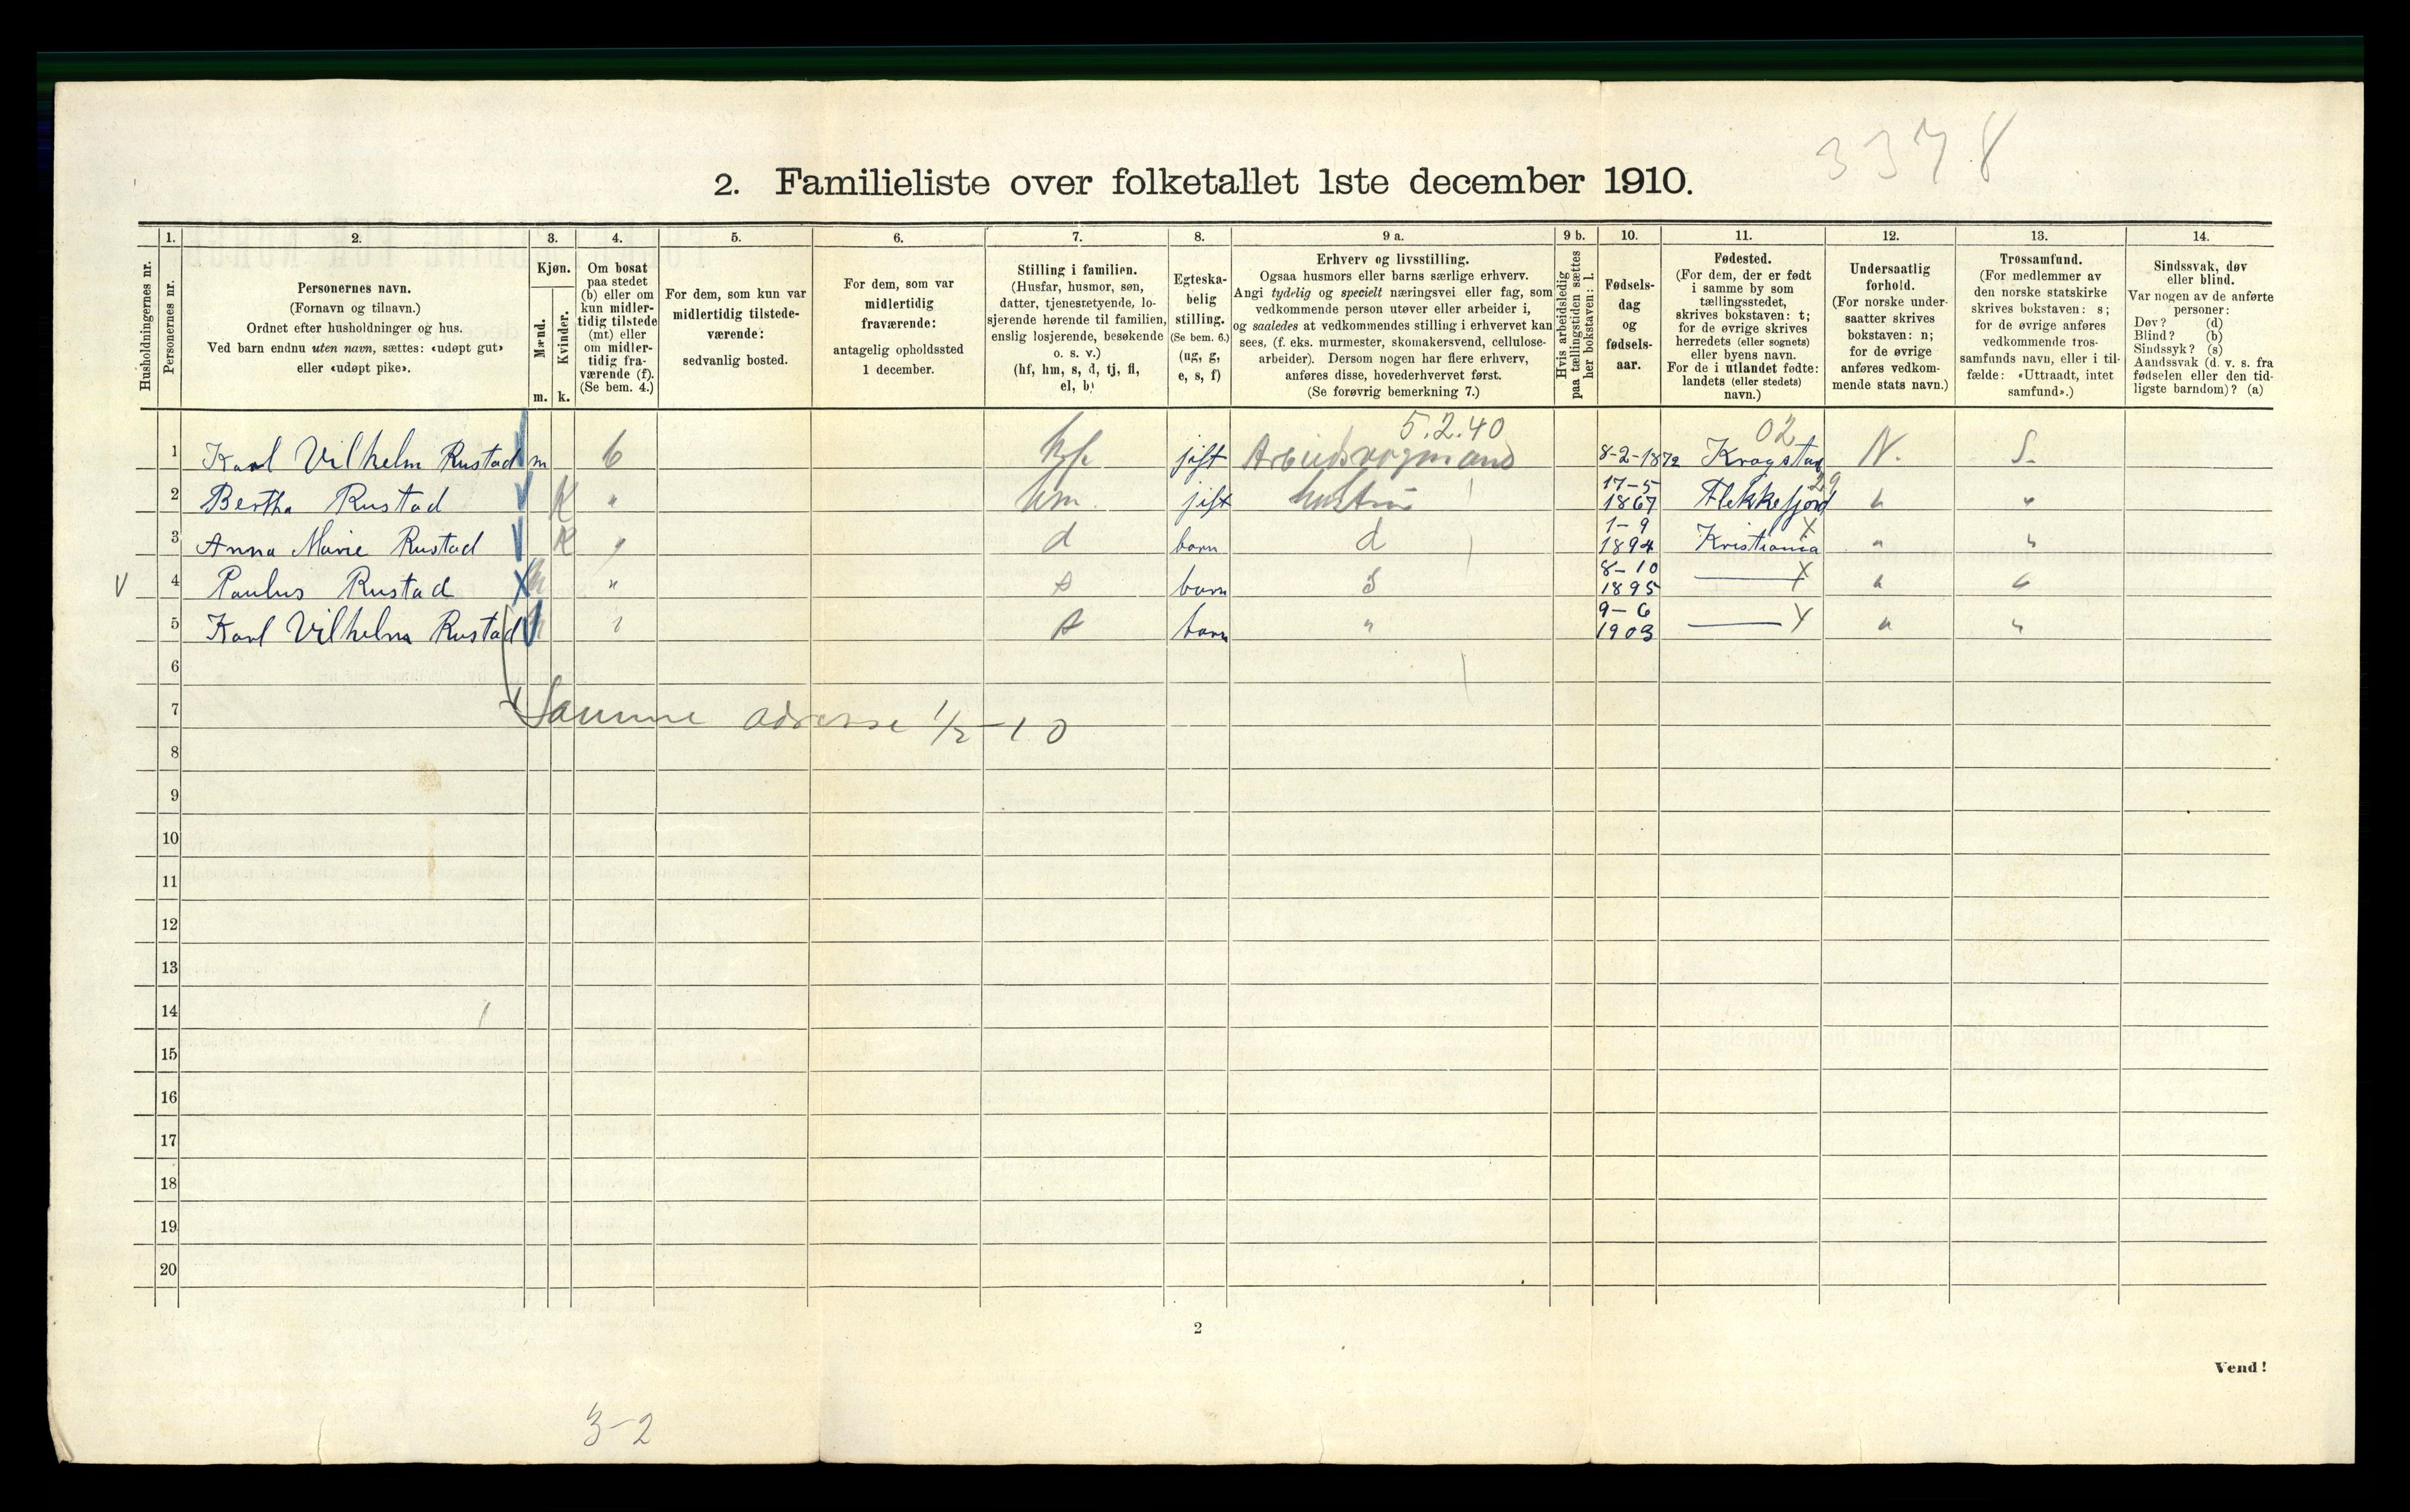 3378
2. Familieliste over folketallet 1ste december 1910.
Husholdningernes nr.
1.
Personernes nr.
2.
Personernes navn.
(Fornavn og tilnavn.)
Ordnet efter husholdninger og hus.
Ved barn endnu uten navn, sættes: «udøpt gut»
eller «udøpt pike».
3.
Kjøn.
Mænd.
Kvinder.
m. k.
4.
Om bosat
paa stedet
(b) eller om
kun midler-
tidig tilstede
(mt) eller
om midler-
tidig fra-
værende (f).
(Se bem. 4.)
5.
For dem, som kun var
midlertidig tilstede-
værende:
sedvanlig bosted.
6.
For dem, som var
midlertidig
fraværende:
antagelig opholdssted
1 december.
7.
Stilling i familien.
(Husfar, husmor, søn,
datter, tjenestetyende, lo-
sjerende hørende til familien,
enslig losjerende, besøkende
o. s. v.)
(hf, hm, s, d, tj, fl,
el, b)
8.
Egteska-
belig
stilling.
(Se bem. 6.)
(ug, g,
e, s, f)
9 a.
Erhverv og livsstilling.
Ogsaa husmors eller barns særlige erhverv.
Angi tydelig og specielt næringsvei eller fag, som
vedkommende person utøver eller arbeider i,
og saaledes at vedkommendes stilling i erhvervet kan
sees, (f. eks. murmester, skomakersvend, cellulose-
arbeider). Dersom nogen har flere erhverv,
anføres disse, hovederhvervet først.
(Se forøvrig bemerkning 7.)
9 b.
Hvis arbeidsledig
paa tællingstiden sættes
her bokstaven: l.
10.
Fødsels-
dag
og
fødsels-
aar.
11.
Fødested.
(For dem, der er født
i samme by som
tællingsstedet,
skrives bokstaven: t;
for de øvrige skrives
herredets (eller sognets)
eller byens navn.
For de i utlandet fødte:
landets (eller stedets)
navn.)
12.
Undersaatlig
forhold.
(For norske under-
saatter skrives
bokstaven: n;
for de øvrige
anføres vedkom-
mende stats navn.)
13.
Trossamfund.
(For medlemmer av
den norske statskirke
skrives bokstaven: s;
for de øvrige anføres
vedkommende tros-
samfunds navn, eller i til-
fælde: «Uttraadt, intet
samfund».)
14.
Sindssvak, døv
eller blind.
Var nogen av de anførte
personer:
Døv? (d)
Blind? (b)
Sindssyk? (s)
Aandssvak (d. v. s. fra
fødselen eller den tid-
ligste barndom)? (a)
5.2.40 02
1 Karl Vilhelm Rustad m b hf jift Arbeidsvogmand 8-2-1872 Krogstad N. S.
2 Bertha Rustad K " hm jift hustru 17-5 1867 Flekkefjord 29 " "
3 Anna Marie Rustad K " d barn d 1-9 1894 Kristiania X " "
V 4 Paulus Rustad X m " s barn S 8-10 1895 — X " "
5 Karl Vilhelm Rustad m " s barn " 9-6 1903 — X " "
6
7 Samme adresse 1/2-10
8
9
10
11
12
13
14
15
16
17
18
19
20
2
Vend!
3-2